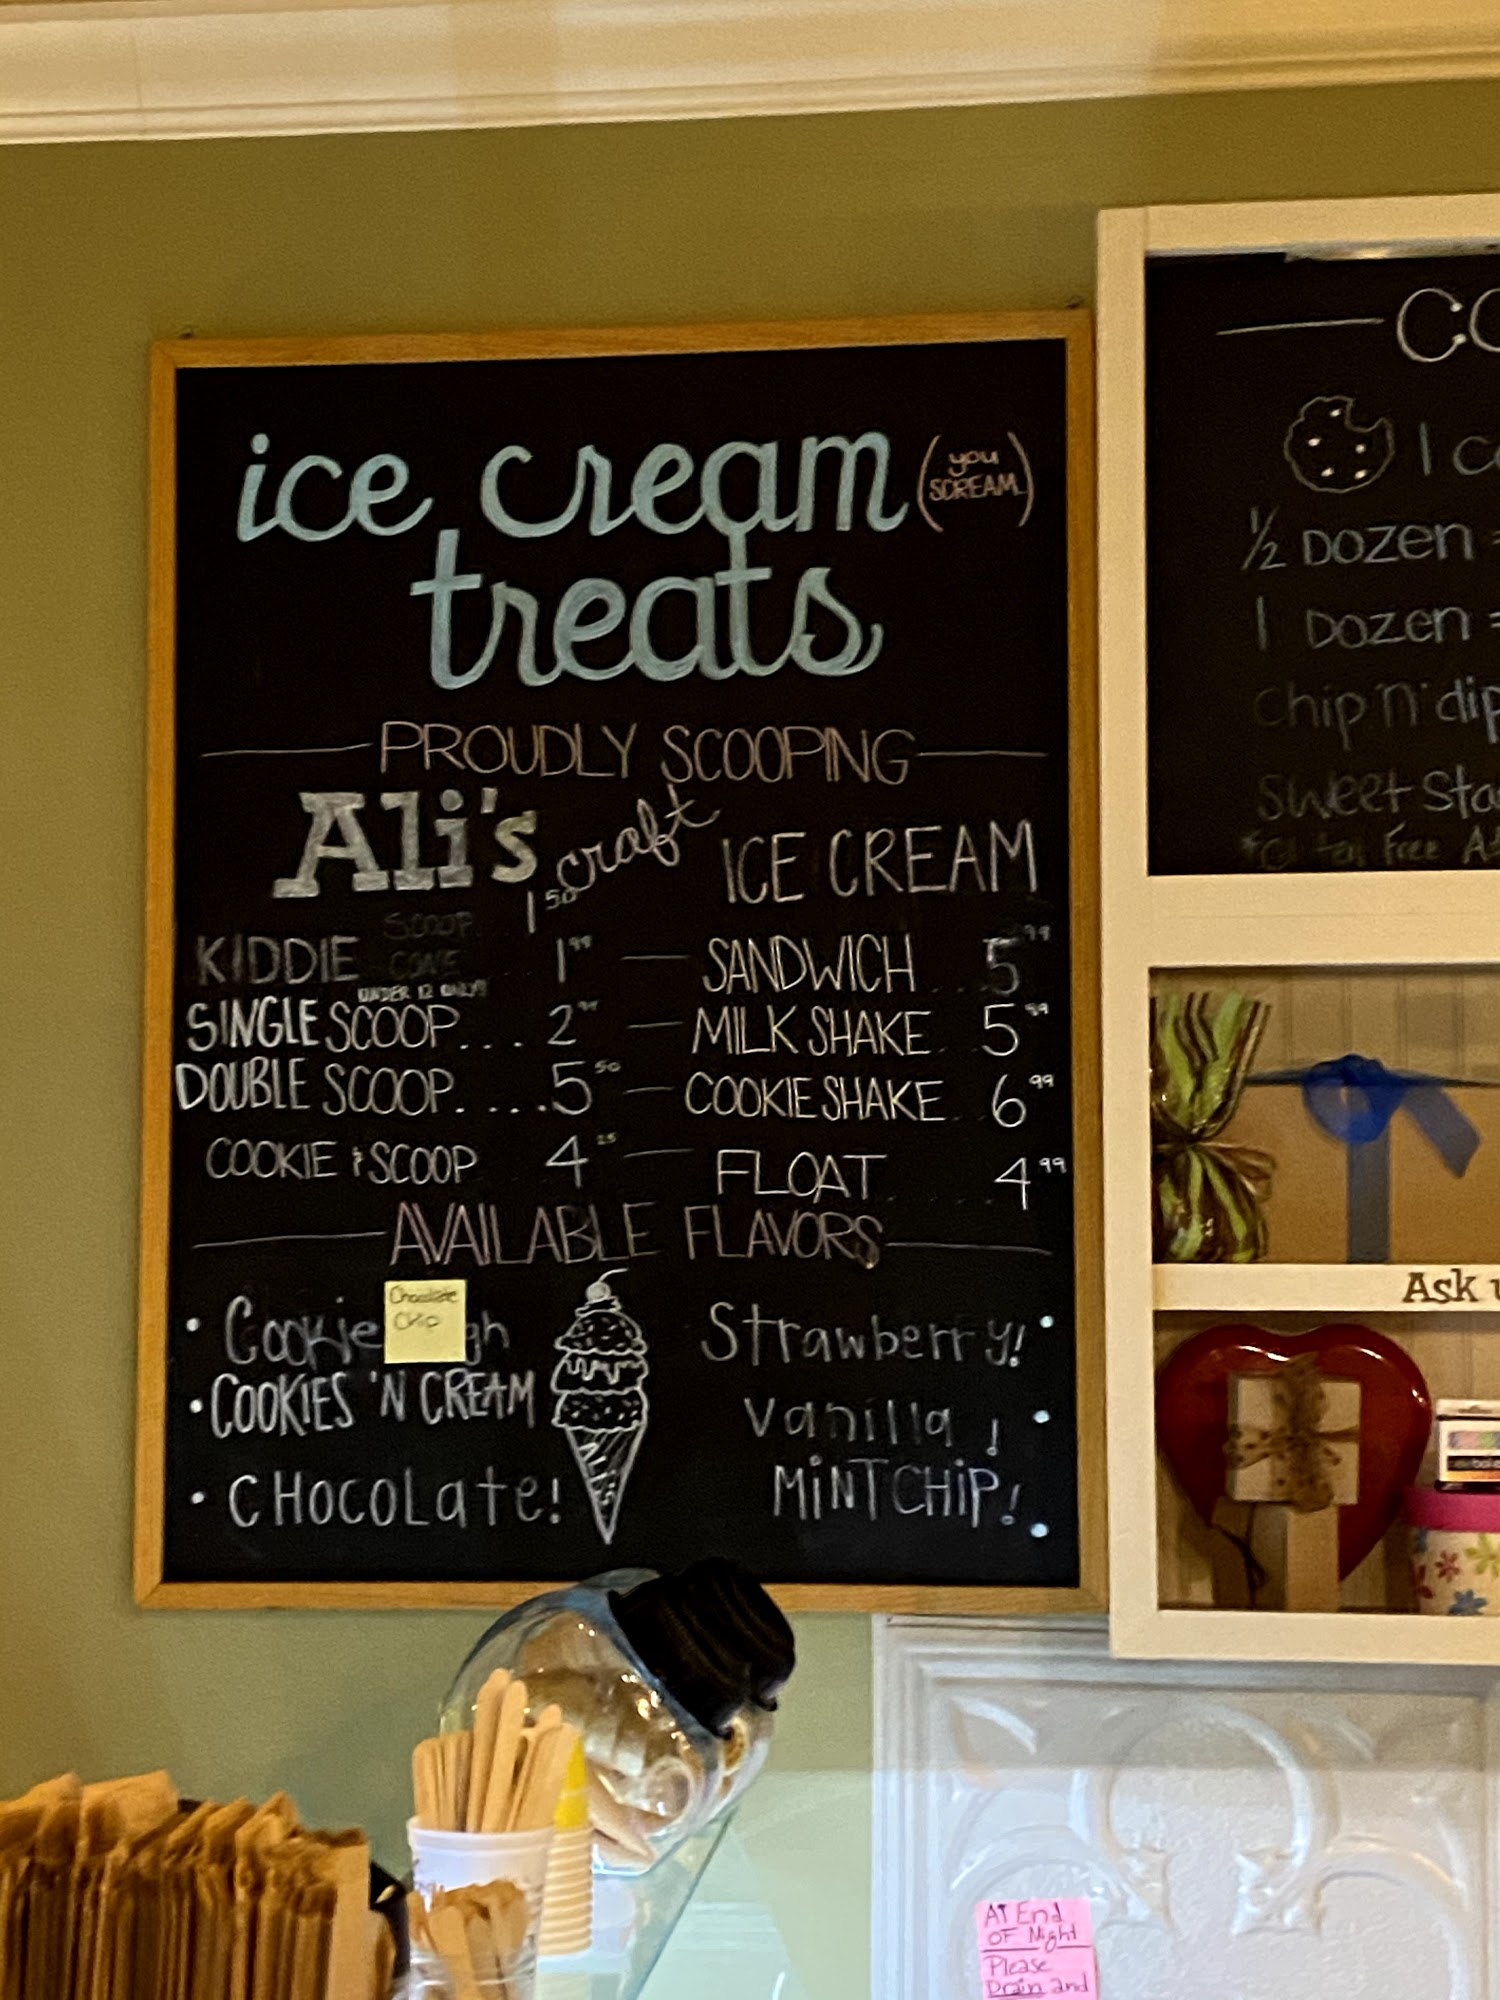 ice cream (you SCREAM)
treats
PROUDLY SCOOPING
Ali's craft ICE CREAM
KIDDIE SCOOP... 1 50
CONE... 1 99
UNDER 12 ONLY!!
SINGLE SCOOP.... 2 99
DOUBLE SCOOP.....5 50
COOKIE & SCOOP 4 25
SANDWICH...5 99
MILK SHAKE..5 99
COOKIE SHAKE..6 99
FLOAT.....4 99
AVAILABLE FLAVORS
• Cookie gh
Chocolate
Chip
• COOKIES 'N CREAM
• CHOCOLate!
Strawberry! •
vanilla! •
MiNT CHiP! •
CO
1 co
1/2 DOZEN =
1 DOZEN =
Chip 'n' dip
Sweet Sta
Free
Ask u
AT End
OF Night
Please
Drain and